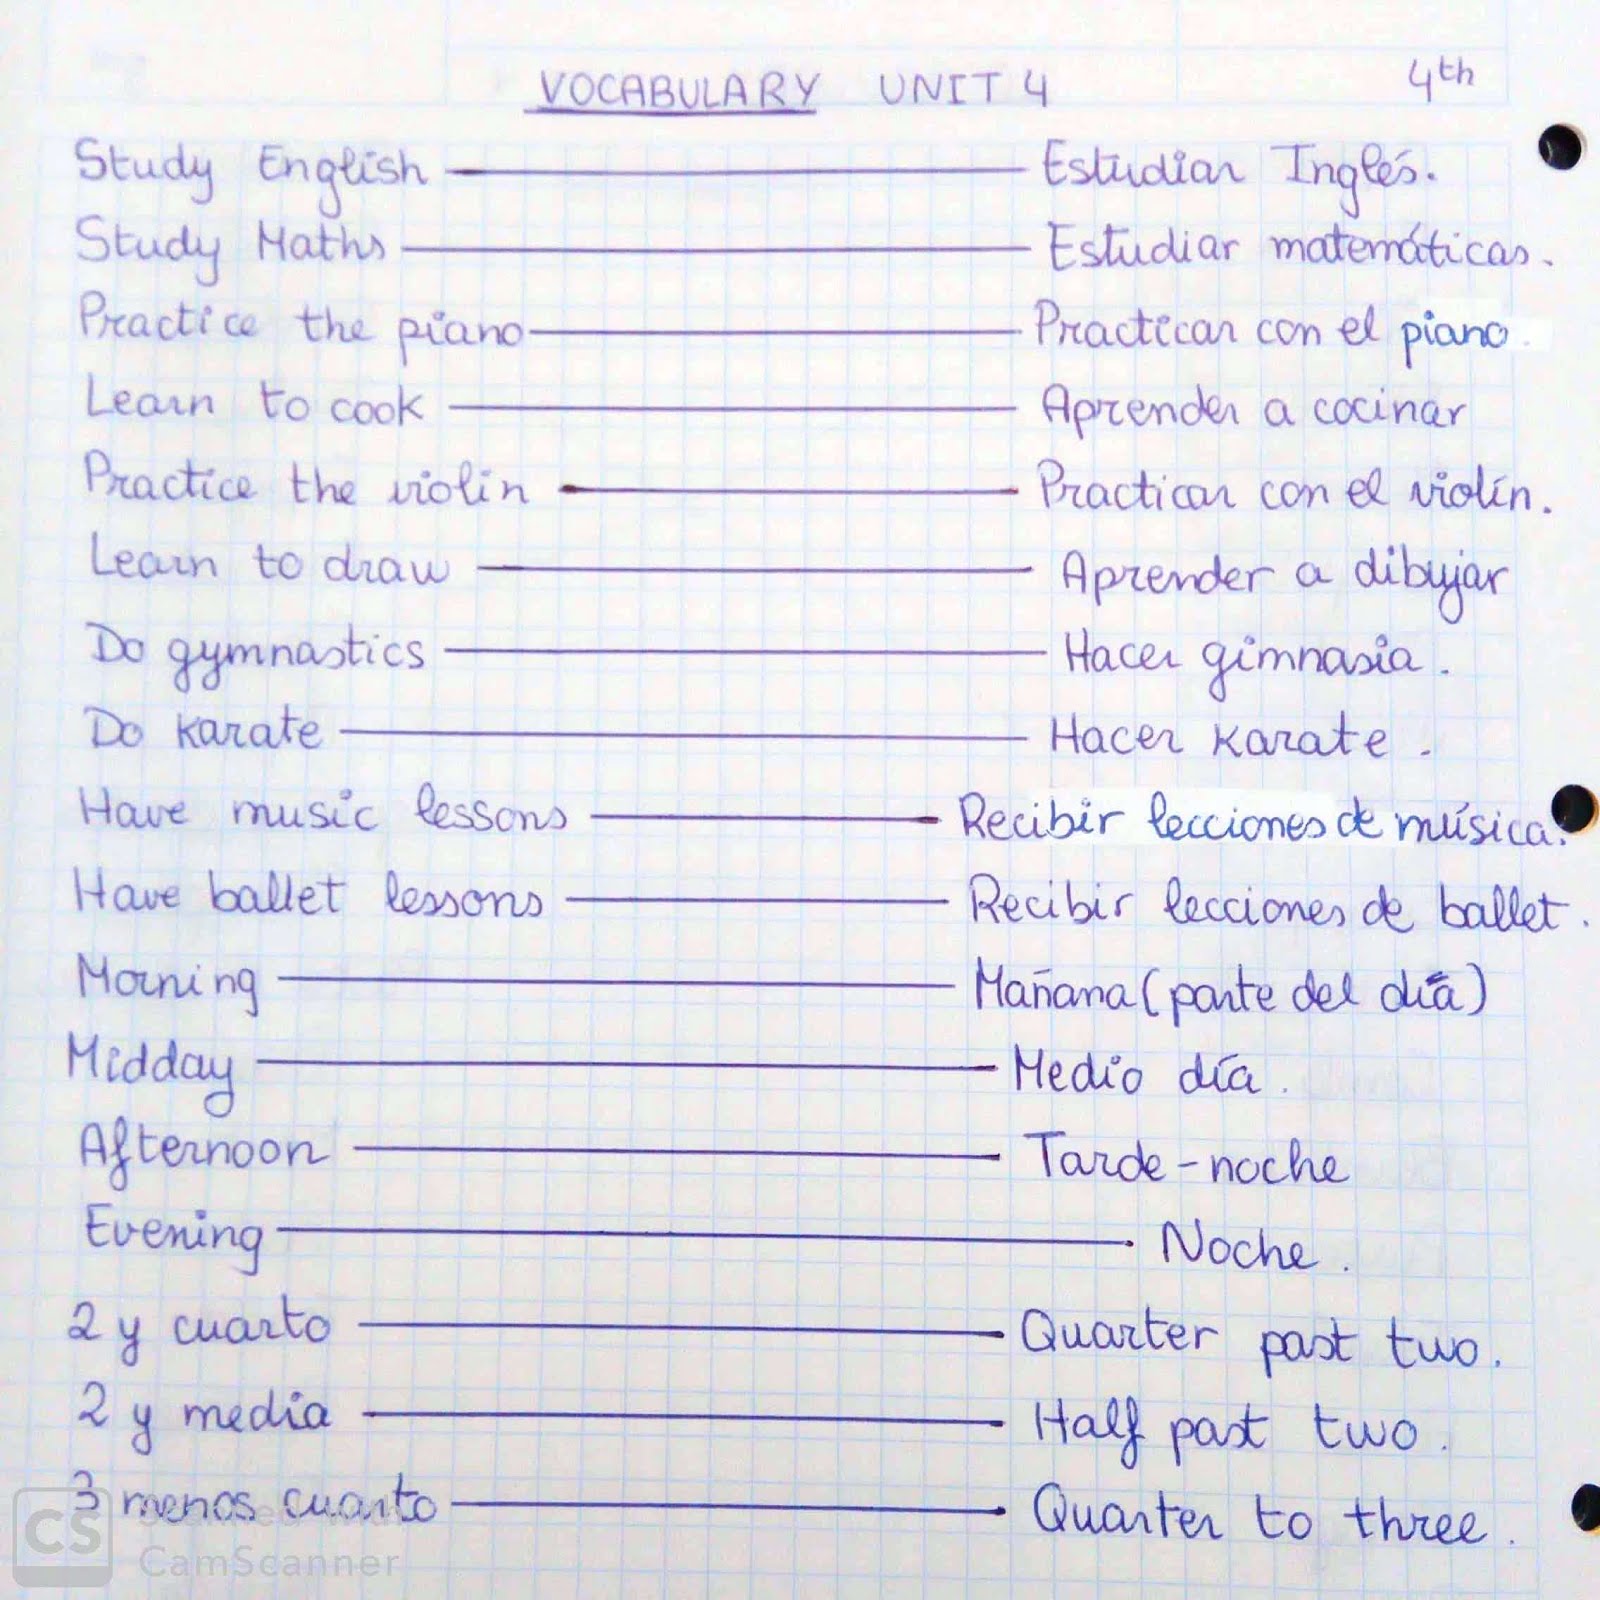 VOCABULARY UNIT 4 4th
Study English — Estudiar Inglés.
Study Maths — Estudiar matemáticas.
Practice the piano — Practicar con el piano.
Learn to cook — Aprender a cocinar
Practice the violin — Practicar con el violín.
Learn to draw — Aprender a dibujar
Do gymnastics — Hacer gimnasia.
Do karate — Hacer karate.
Have music lessons — Recibir lecciones de música.
Have ballet lessons — Recibir lecciones de ballet.
Morning — Mañana (parte del día)
Midday — Medio día.
Afternoon — Tarde-noche
Evening — Noche.
2 y cuarto — Quarter past two.
2 y media — Half past two.
3 menos cuarto — Quarter to three.
CS Scanned with
CamScanner